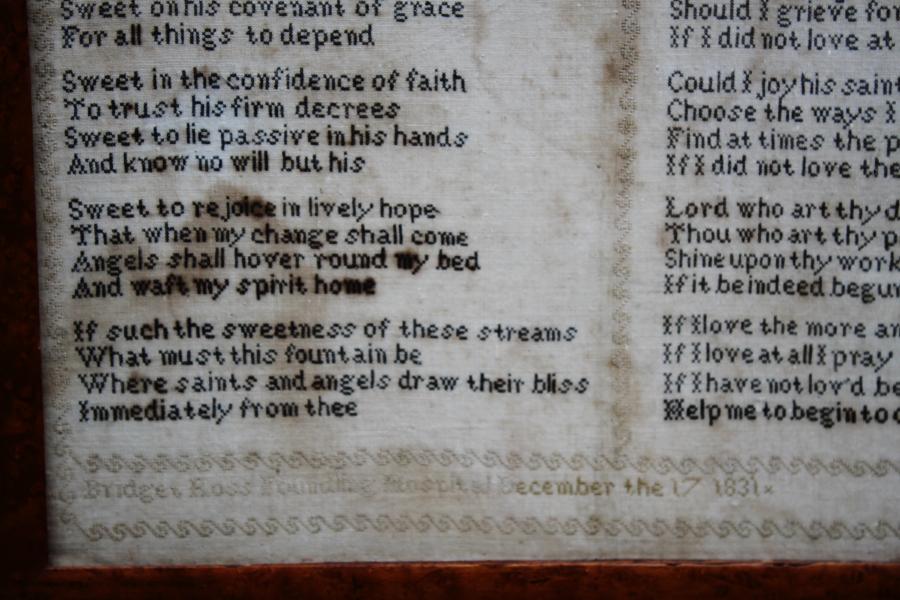 Sweet on his covenant of grace
For all things to depend
Sweet in the confidence of faith
To trust his firm decrees
Sweet to lie passive in his hands
And know no will but his
Sweet to rejoice in lively hope
That when my change shall come
Angels shall hover round my bed
And waft my spirit home
If such the sweetness of these streams
What must this fountain be
Where saints and angels draw their bliss
Immediately from thee
Should I grieve for
If I did not love at
Could I joy his saint
Choose the ways I
Find at times the p
If I did not love the
Lord who art thy d
Thou who art thy p
Shine upon thy work
If it be indeed begun
If I love the more an
If I love at all I pray
If I have not lov'd be
Help me to begin to d
Bridget Ross Foundling Hospital December the 17 1831